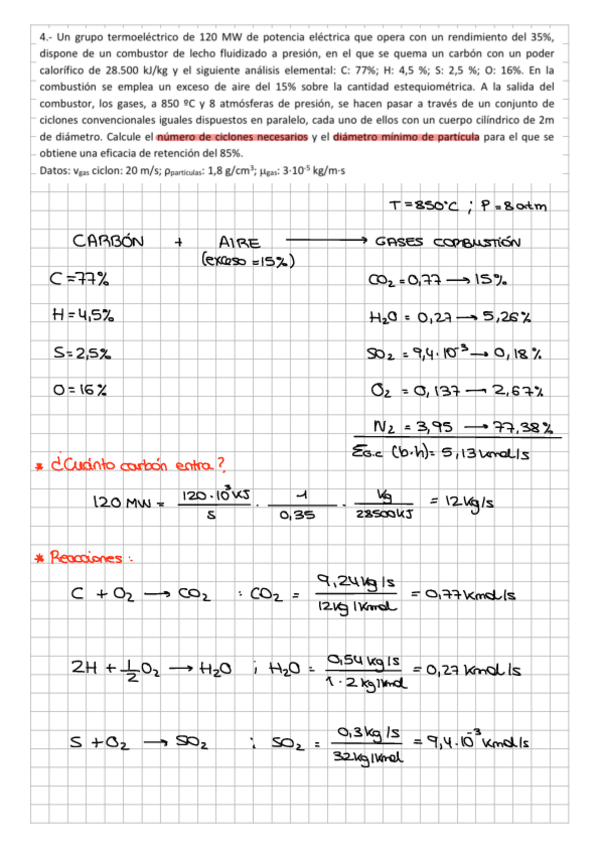 4.- Un grupo termoeléctrico de 120 MW de potencia eléctrica que opera con un rendimiento del 35%,
dispone de un combustor de lecho fluidizado a presión, en el que se quema un carbón con un poder
calorífico de 28.500 kJ/kg y el siguiente análisis elemental: C: 77%; H: 4,5 %; S: 2,5 %; O: 16%. En la
combustión se emplea un exceso de aire del 15% sobre la cantidad estequiométrica. A la salida del
combustor, los gases, a 850 ºC y 8 atmósferas de presión, se hacen pasar a través de un conjunto de
ciclones convencionales iguales dispuestos en paralelo, cada uno de ellos con un cuerpo cilíndrico de 2m
de diámetro. Calcule el número de ciclones necesarios y el diámetro mínimo de partícula para el que se
obtiene una eficacia de retención del 85%.
Datos: vgas ciclon: 20 m/s; ρpartículas: 1,8 g/cm³; μgas: 3·10⁻⁵ kg/m·s
T = 850°C ; P = 8 atm
CARBÓN + AIRE → GASES COMBUSTIÓN
(exceso = 15%)
C = 77% CO₂ = 0,77 → 15%
H = 4,5% H₂O = 0,27 → 5,26%
S = 2,5% SO₂ = 9,4·10⁻³ → 0,18%
O = 16% O₂ = 0,137 → 2,67%
N₂ = 3,95 → 77,38%
ΣG.C (b.h) = 5,13 kmol/s
* ¿Cuánto carbón entra?
120 MW = 120·10³ KJ / s · 1 / 0,35 · Kg / 28500 KJ = 12 Kg/s
* Reacciones:
C + O₂ → CO₂ : CO₂ = 9,24 kg/s / 12 kg/Kmol = 0,77 Kmol/s
2H + 1/2 O₂ → H₂O ; H₂O = 0,54 kg/s / 1·2 kg/kmol = 0,27 Kmol/s
S + O₂ → SO₂ ; SO₂ = 0,3 kg/s / 32 kg/Kmol = 9,4·10⁻³ Kmol/s